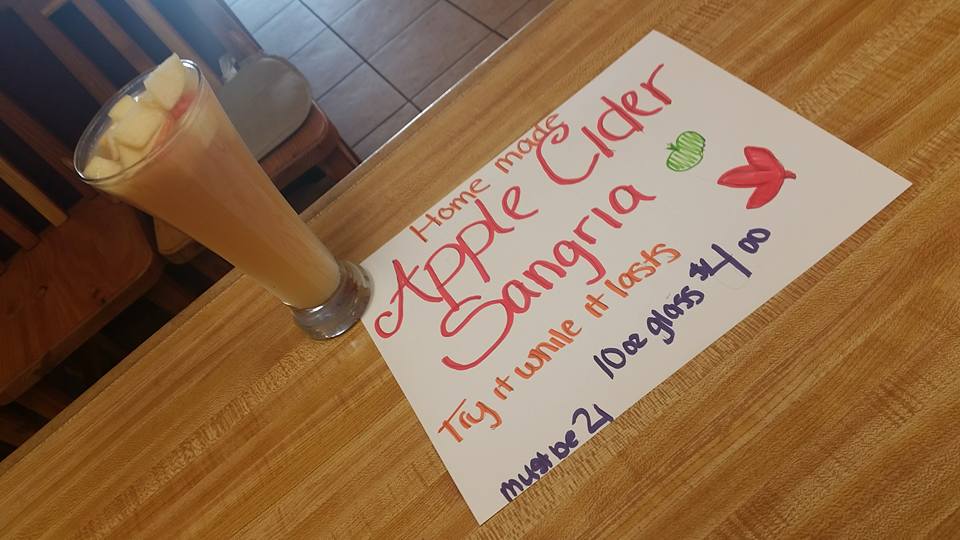 Home made
Apple Cider
Sangria
Try it while it lasts
10oz glass $4.00
must be 21